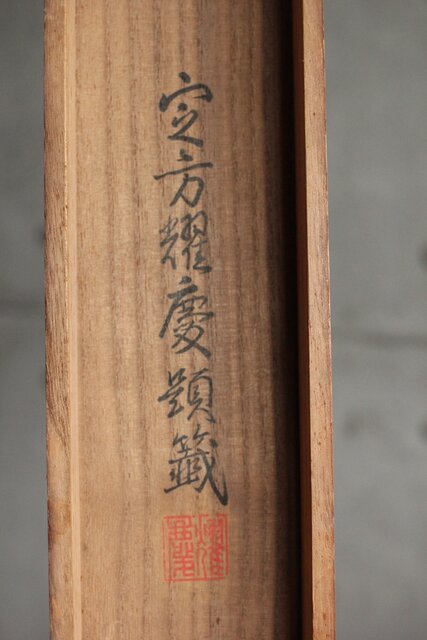 定方耀慶題籤